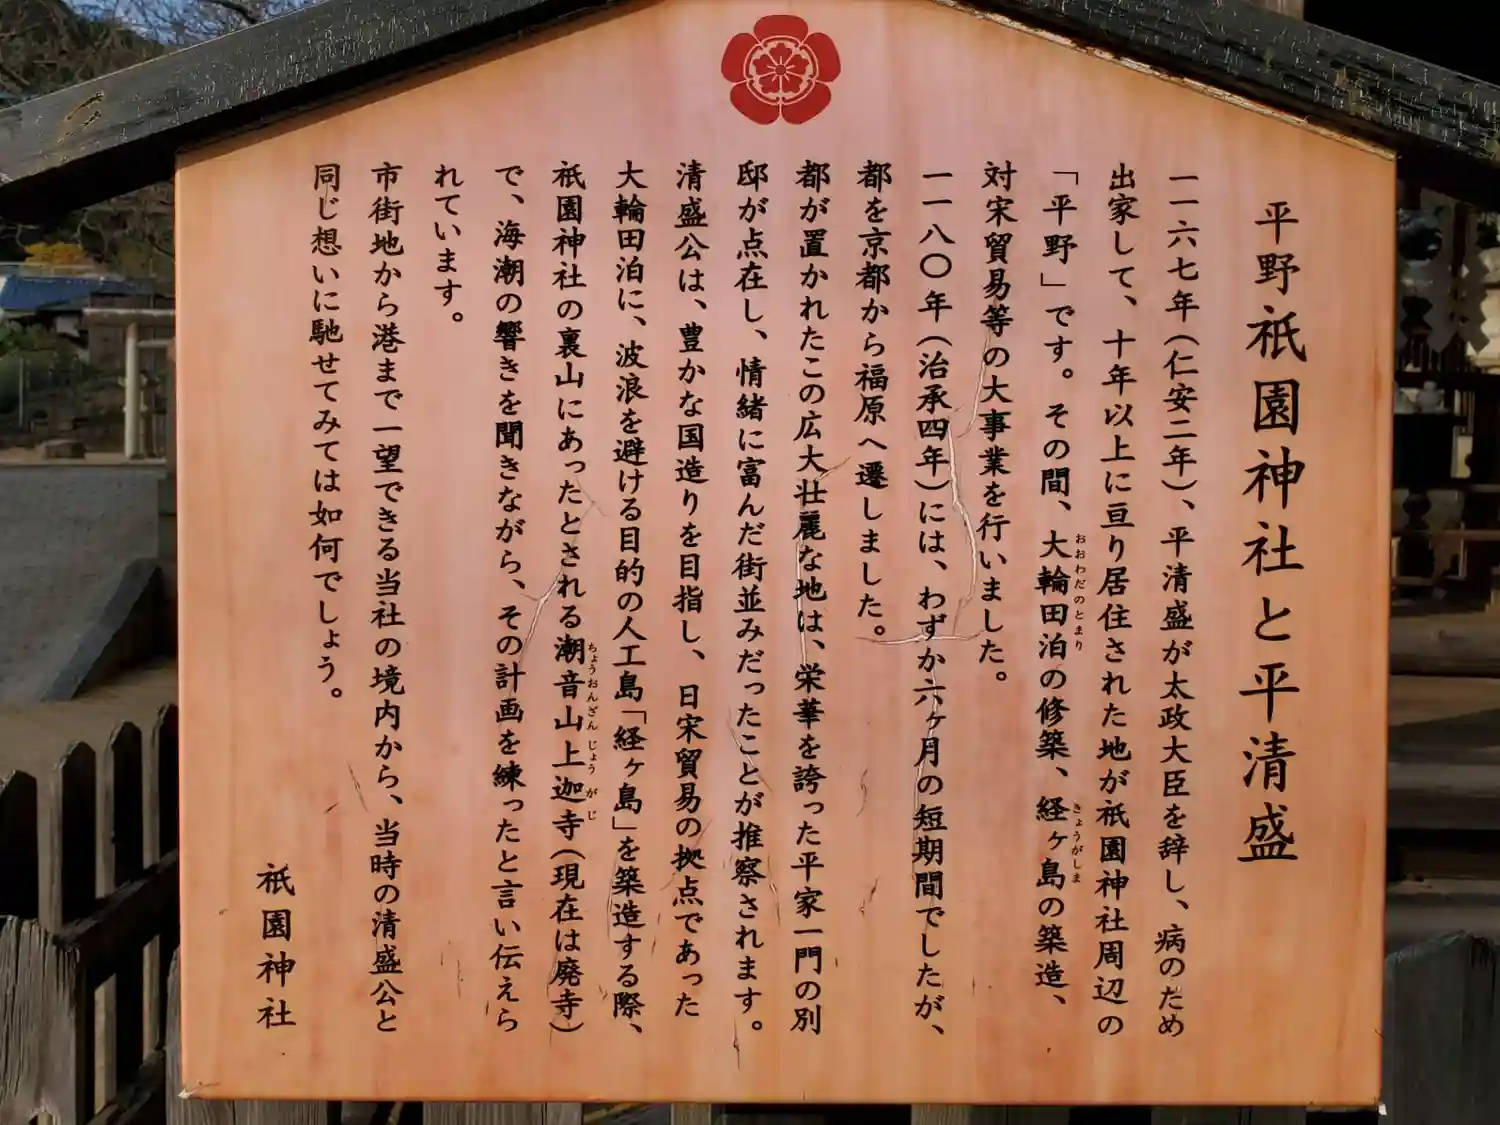 平野祇園神社と平清盛
一一六七年(仁安二年)、平清盛が太政大臣を辞し、病のため
出家して、十年以上に亘り居住された地が祇園神社周辺の
「平野」です。その間、大輪田泊の修築、経ヶ島の築造、
おおわだのとまり
きょうがしま
対宋貿易等の大事業を行いました。
一一八〇年(治承四年)には、わずか六ヶ月の短期間でしたが、
都を京都から福原へ遷しました。
都が置かれたこの広大壮麗な地は、栄華を誇った平家一門の別
邸が点在し、情緒に富んだ街並みだったことが推察されます。
清盛公は、豊かな国造りを目指し、日宋貿易の拠点であった
大輪田泊に、波浪を避ける目的の人工島「経ヶ島」を築造する際、
祇園神社の裏山にあったとされる潮音山上迦寺(現在は廃寺)
ちょうおんざんじょうがじ
で、海潮の響きを聞きながら、その計画を練ったと言い伝えら
れています。
市街地から港まで一望できる当社の境内から、当時の清盛公と
同じ想いに馳せてみては如何でしょう。
祇園神社